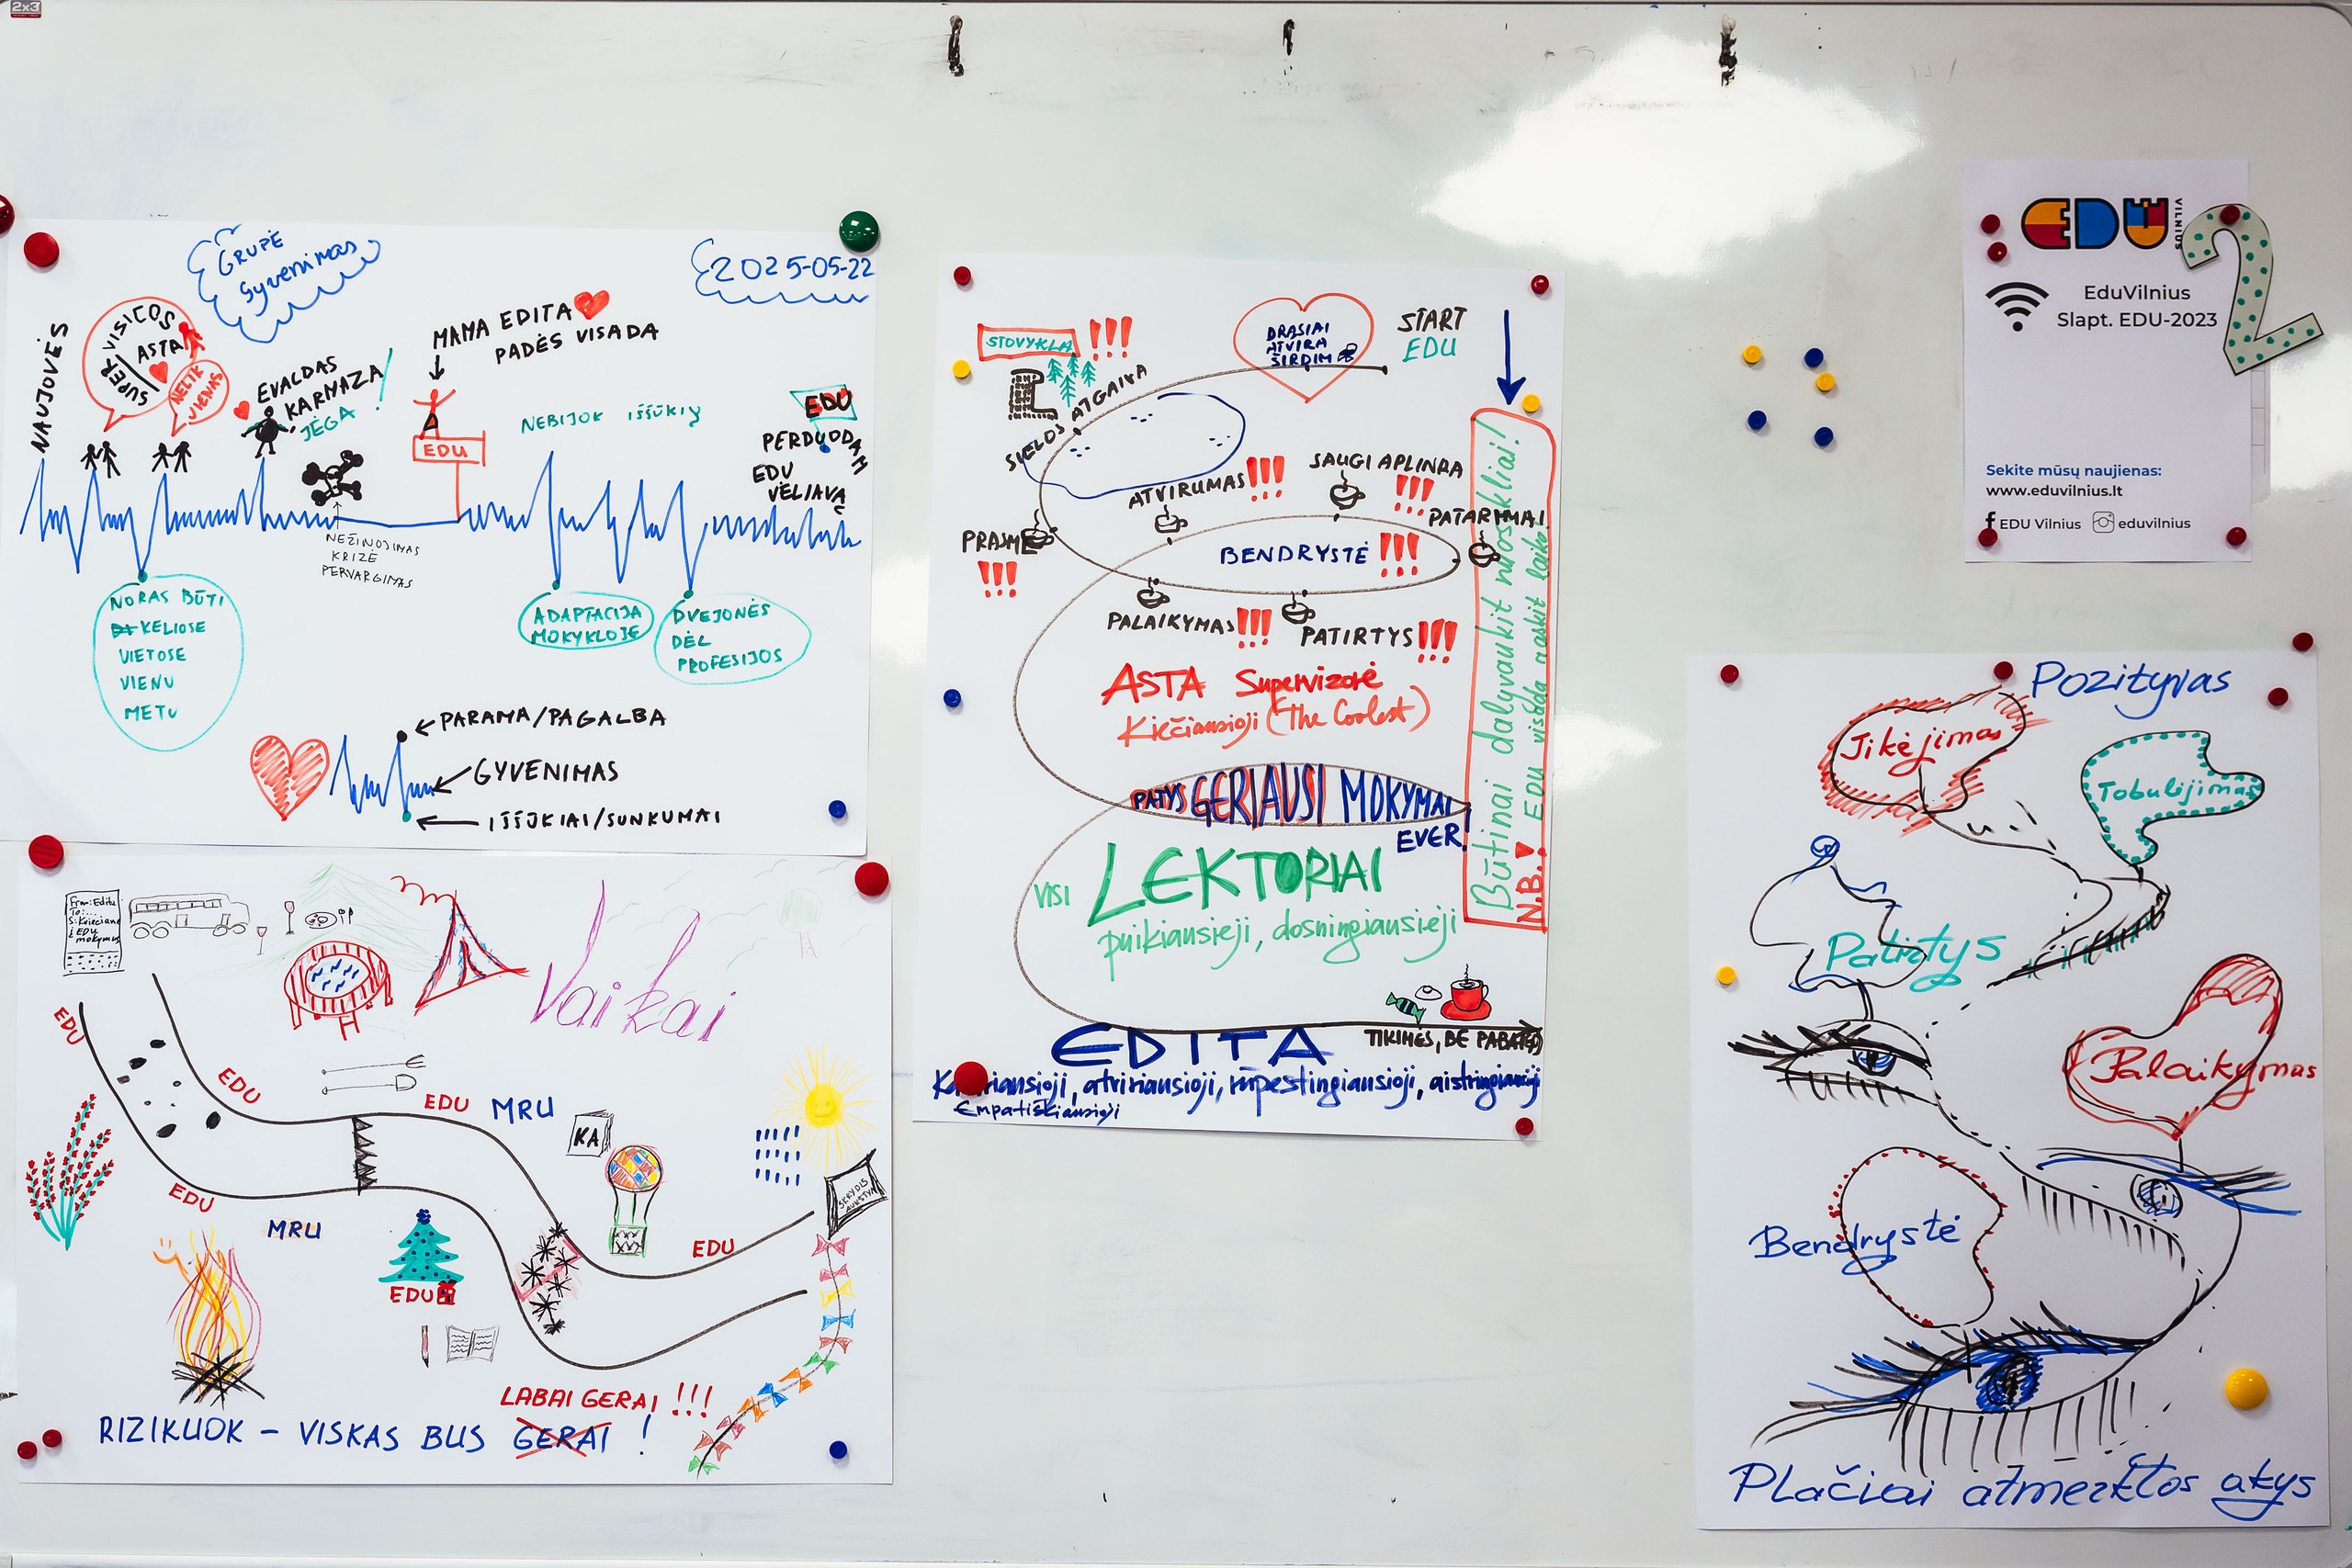 2x3
GRUPĖ
Gyvenimas
2025-05-22
NAUJOVĖS
SUPER VISICOS
ASTA
NELIK
VIENAS
EVALDAS
KARMAZA
JĖGA!
MAMA EDITA
PADĖS VISADA
EDU
NEBIJOK IŠŠŪKIŲ
EDU
PERDUODAM
EDU
VĖLIAVĄ
NEŽINOJIMAS
KRIZĖ
PERVARGIMAS
NORAS BŪTI
KELIOSE
VIETOSE
VIENU
METU
ADAPTACIJA
MOKYKLOJE
DVEJONĖS
DĖL
PROFESIJOS
PARAMA/PAGALBA
GYVENIMAS
IŠŠŪKIAI/SUNKUMAI
From: Edita
To:...
į EDU
mokymus
Vaikai
EDU
EDU
EDU
MRU
KA
EDU
MRU
EDU
EDU
SKRYDIS
AUKŠTYN
LABAI GERAI !!!
RIZIKUOK – VISKAS BUS GERAI !
STOVYKLA !!!
DRĄSIAI
ATVIRA
ŠIRDIM
START
EDU
SIELOS ATGAIVA
ATVIRUMAS !!!
SAUGI APLINKA
!!!
PATARIMAI
PRASMĖ
!!!
BENDRYSTĖ !!!
PALAIKYMAS !!!
PATIRTYS !!!
ASTA Supervizorė
Kiečiausioji (The Coolest)
PATYS GERIAUSI MOKYMAI
EVER!
VISI LEKTORIAI
puikiausieji, dosningiausieji
Būtinai dalyvaukit
N.B. EDU visada raskit laiko!
TIKIMĖS, BE PABAIGOS
EDITA
atviriausioji, rūpestingiausioji, aistringiausioji
Empatiškiausioji
EDU
VILNIUS
2
EduVilnius
Slapt. EDU-2023
Sekite mūsų naujienas:
www.eduvilnius.lt
EDU Vilnius eduvilnius
Pozityvas
Įkvėjimas
Tobulėjimas
Patirtys
Palaikymas
Bendrystė
Plačiai atmerktos akys